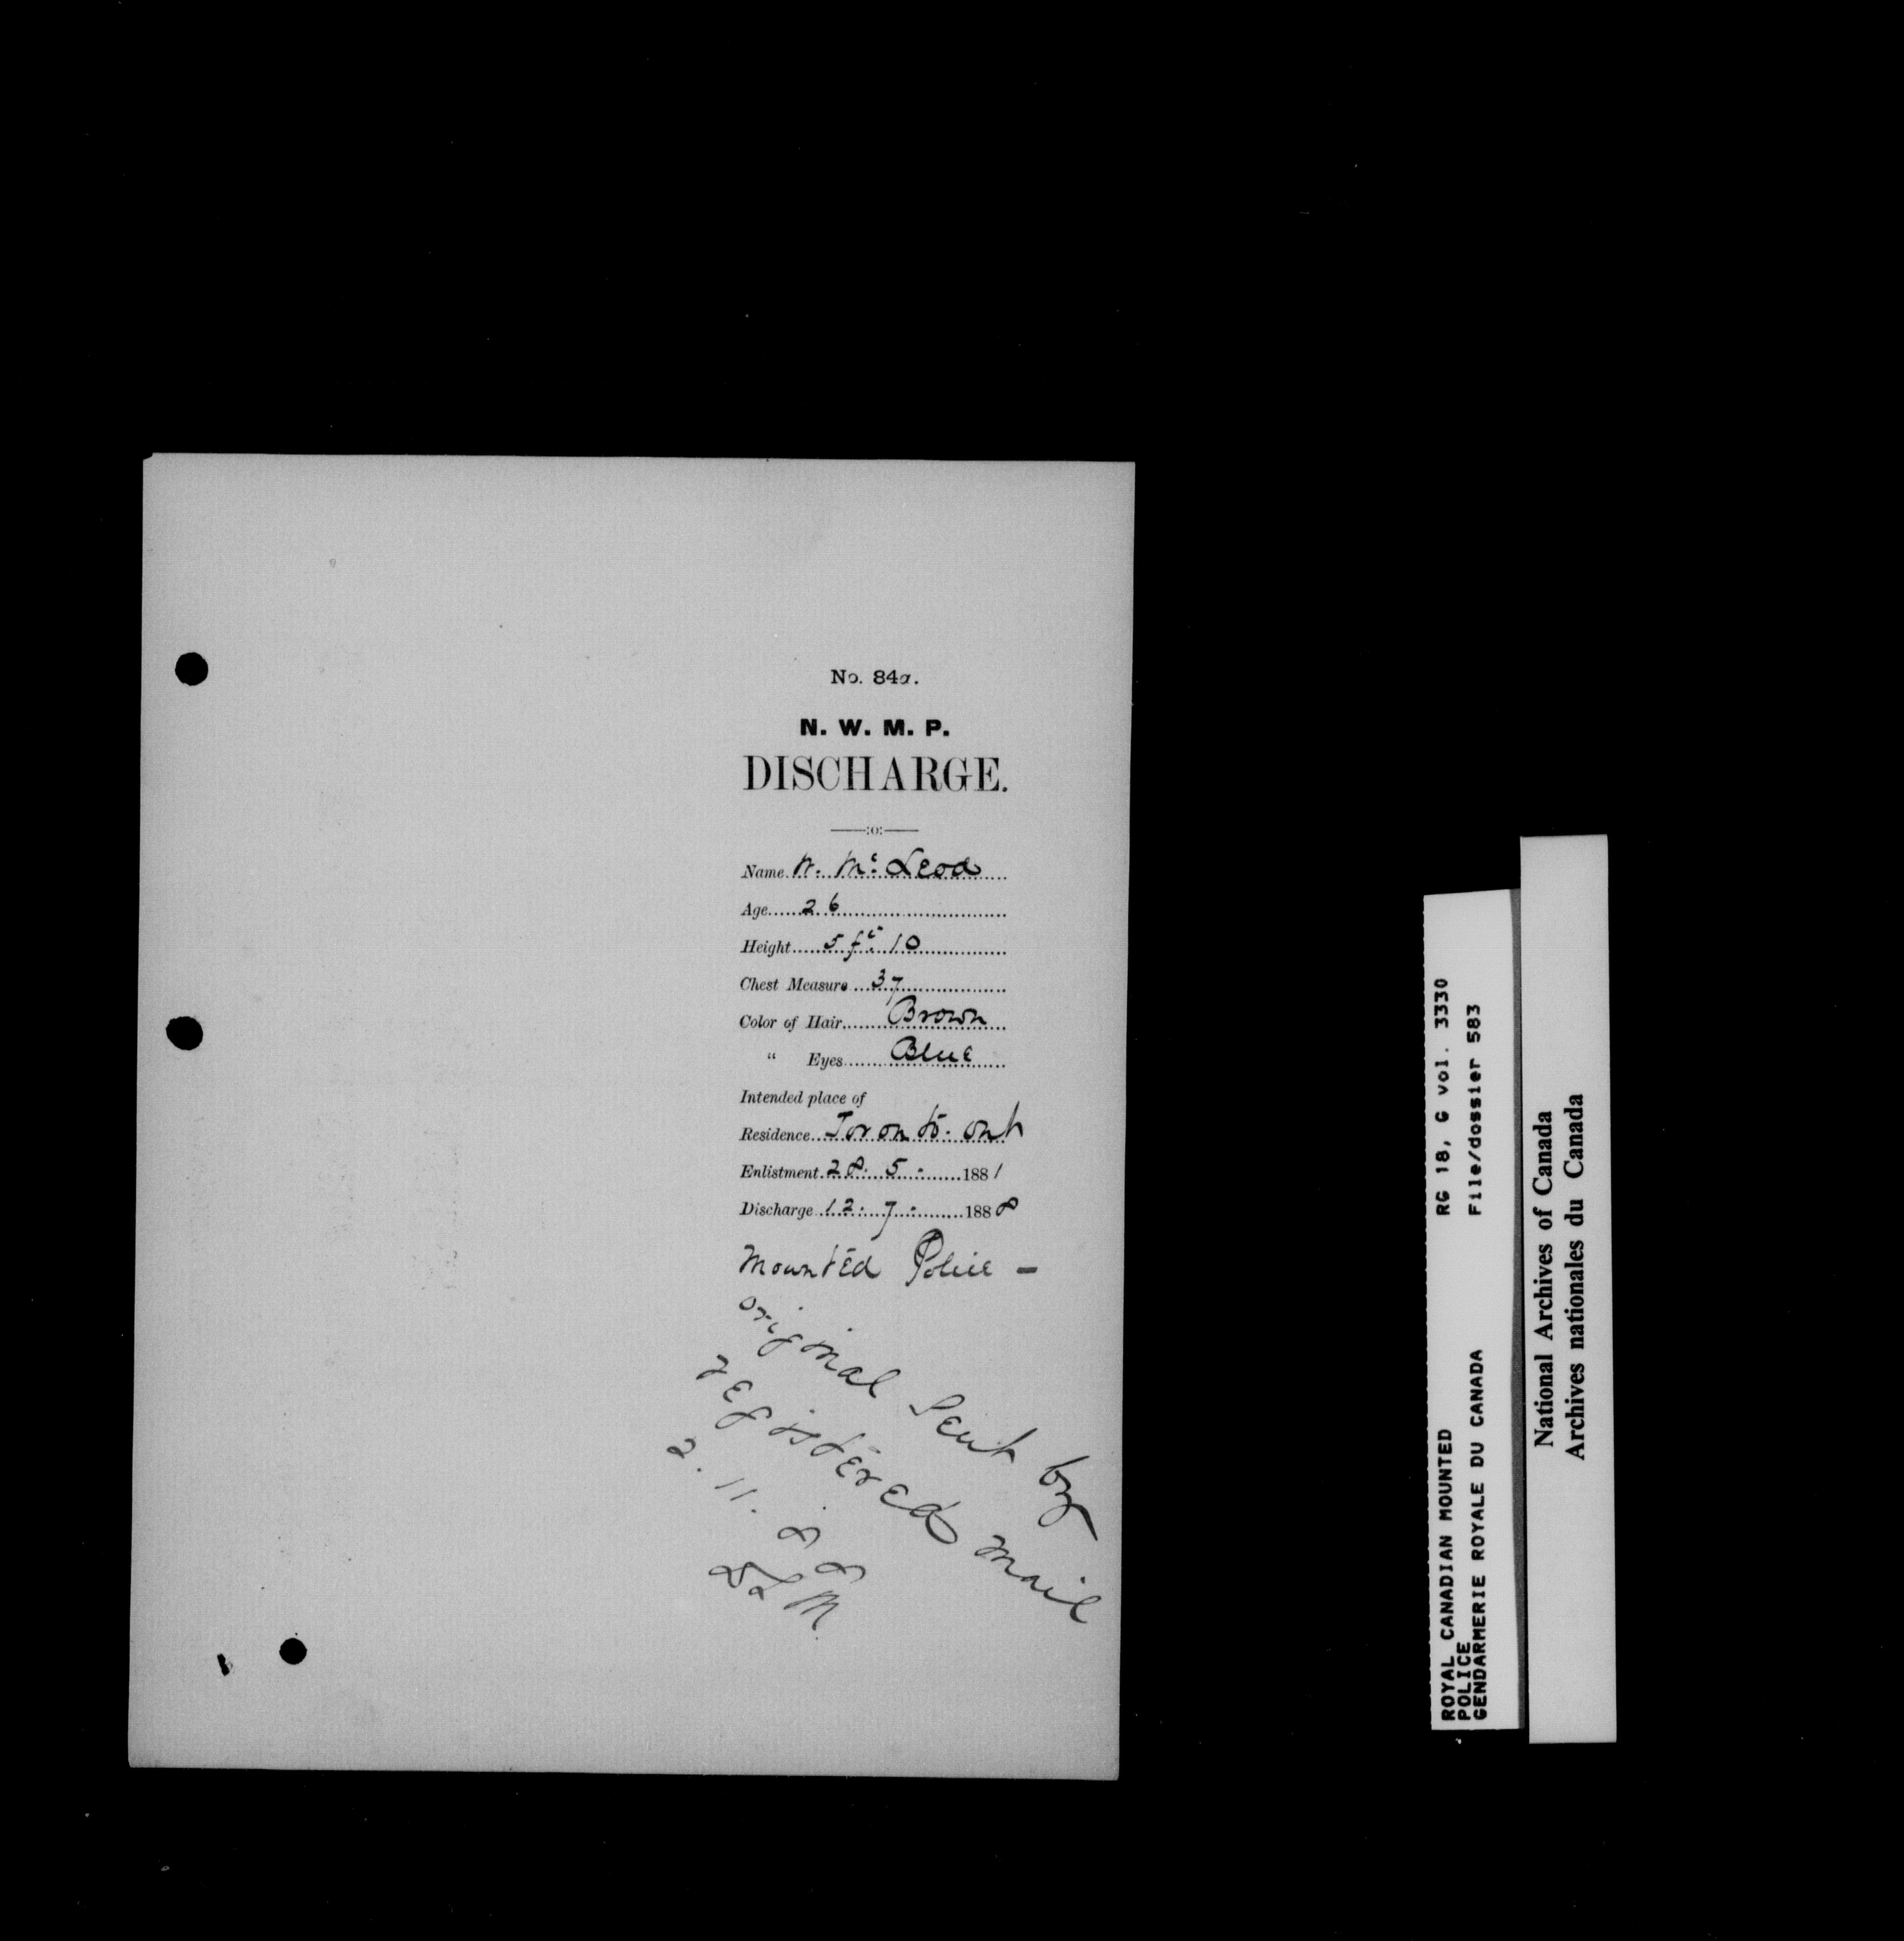 No. 84a.
N. W. M. P.
DISCHARGE.
—:o:—
Name N. Mc. Leod
Age 26
Height 5 ft. 10
Chest Measure 37
Color of Hair Brown
" Eyes Blue
Intended place of
Residence Toronto. Ont
Enlistment 28. 5. 1881
Discharge 12. 7. 1888
Mounted Police -
original Sent by
registered mail
2. 11. 88
ROYAL CANADIAN MOUNTED RG 18, G vol. 3330
POLICE File/dossier 583
GENDARMERIE ROYALE DU CANADA
National Archives of Canada
Archives nationales du Canada